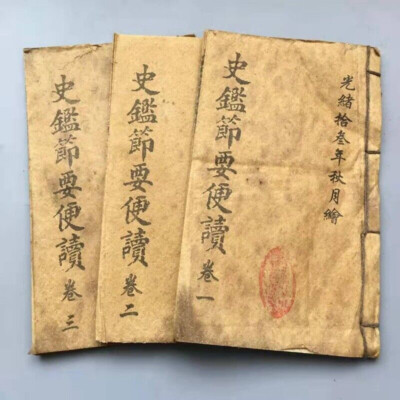 光緒拾叁年秋月繪
史鑑節要便讀
卷一
史鑑節要便讀
卷二
史鑑節要便讀
卷三